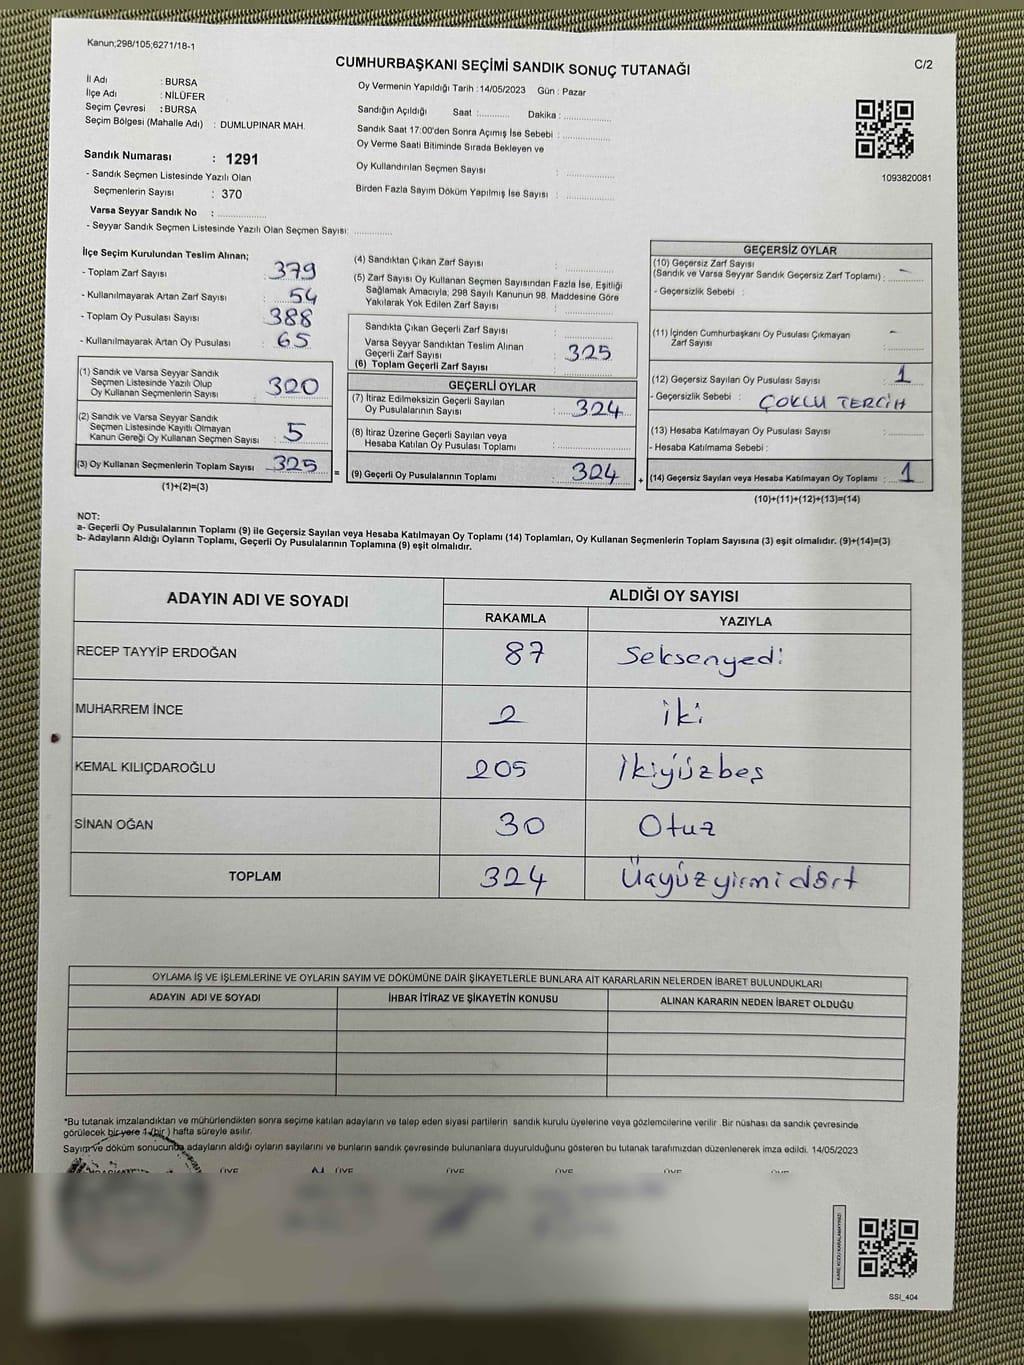 Kanun;298/105;6271/18-1
CUMHURBAŞKANI SEÇİMİ SANDIK SONUÇ TUTANAĞI
C/2
İl Adı : BURSA
İlçe Adı : NİLÜFER
Seçim Çevresi : BURSA
Seçim Bölgesi (Mahalle Adı) : DUMLUPINAR MAH.
Sandık Numarası : 1291
- Sandık Seçmen Listesinde Yazılı Olan
Seçmenlerin Sayısı : 370
Varsa Seyyar Sandık No : ..............
- Seyyar Sandık Seçmen Listesinde Yazılı Olan Seçmen Sayısı: ............
Oy Vermenin Yapıldığı Tarih : 14/05/2023 Gün : Pazar
Sandığın Açıldığı Saat :........... Dakika : ..............
Sandık Saat 17:00'den Sonra Açımış İse Sebebi : ..............
Oy Verme Saati Bitiminde Sırada Bekleyen ve
Oy Kullandırılan Seçmen Sayısı : ..............
Birden Fazla Sayım Döküm Yapılmış İse Sayısı : ..............
1093820081
İlçe Seçim Kurulundan Teslim Alınan;
- Toplam Zarf Sayısı : 379
- Kullanılmayarak Artan Zarf Sayısı : 54
- Toplam Oy Pusulası Sayısı : 388
- Kullanılmayarak Artan Oy Pusulası : 65
(1) Sandık ve Varsa Seyyar Sandık
Seçmen Listesinde Yazılı Olup
Oy Kullanan Seçmenlerin Sayısı : 320
(2) Sandık ve Varsa Seyyar Sandık
Seçmen Listesinde Kayıtlı Olmayan
Kanun Gereği Oy Kullanan Seçmen Sayısı : 5
(3) Oy Kullanan Seçmenlerin Toplam Sayısı : 325
(1)+(2)=(3)
(4) Sandıktan Çıkan Zarf Sayısı : ..............
(5) Zarf Sayısı Oy Kullanan Seçmen Sayısından Fazla İse, Eşitliği
Sağlamak Amacıyla, 298 Sayılı Kanunun 98. Maddesine Göre
Yakılarak Yok Edilen Zarf Sayısı : ..............
Sandıkta Çıkan Geçerli Zarf Sayısı : ..............
Varsa Seyyar Sandıktan Teslim Alınan
Geçerli Zarf Sayısı : 325
(6) Toplam Geçerli Zarf Sayısı :
GEÇERLİ OYLAR
(7) İtiraz Edilmeksizin Geçerli Sayılan
Oy Pusulalarının Sayısı : 324
(8) İtiraz Üzerine Geçerli Sayılan veya
Hesaba Katılan Oy Pusulası Toplamı : ..............
= (9) Geçerli Oy Pusulalarının Toplamı : 324 +
GEÇERSİZ OYLAR
(10) Geçersiz Zarf Sayısı
(Sandık ve Varsa Seyyar Sandık Geçersiz Zarf Toplamı) : -
- Geçersizlik Sebebi :
(11) İçinden Cumhurbaşkanı Oy Pusulası Çıkmayan
Zarf Sayısı : -
(12) Geçersiz Sayılan Oy Pusulası Sayısı : 1
- Geçersizlik Sebebi : ÇOKLU TERCİH
(13) Hesaba Katılmayan Oy Pusulası Sayısı : ..........
- Hesaba Katılmama Sebebi :
(14) Geçersiz Sayılan veya Hesaba Katılmayan Oy Toplamı : 1
(10)+(11)+(12)+(13)=(14)
NOT:
a- Geçerli Oy Pusulalarının Toplamı (9) ile Geçersiz Sayılan veya Hesaba Katılmayan Oy Toplamı (14) Toplamları, Oy Kullanan Seçmenlerin Toplam Sayısına (3) eşit olmalıdır. (9)+(14)=(3)
b- Adayların Aldığı Oyların Toplamı, Geçerli Oy Pusulalarının Toplamına (9) eşit olmalıdır.
ADAYIN ADI VE SOYADI ALDIĞI OY SAYISI
RAKAMLA YAZIYLA
RECEP TAYYİP ERDOĞAN 87 Seksenyedi
MUHARREM İNCE 2 iki
KEMAL KILIÇDAROĞLU 205 İkiyüzbeş
SİNAN OĞAN 30 Otuz
TOPLAM 324 Üçyüzyirmidört
OYLAMA İŞ VE İŞLEMLERİNE VE OYLARIN SAYIM VE DÖKÜMÜNE DAİR ŞİKAYETLERLE BUNLARA AİT KARARLARIN NELERDEN İBARET BULUNDUKLARI
ADAYIN ADI VE SOYADI İHBAR İTİRAZ VE ŞİKAYETİN KONUSU ALINAN KARARIN NEDEN İBARET OLDUĞU
*Bu tutanak imzalandıktan ve mühürlendikten sonra seçime katılan adayların ve talep eden siyasi partilerin sandık kurulu üyelerine veya gözlemcilerine verilir .Bir nüshası da sandık çevresinde
görülecek bir yere 1 (bir ) hafta süreyle asılır.
Sayım ve döküm sonucunda adayların aldığı oyların sayılarını ve bunların sandık çevresinde bulunanlara duyurulduğunu gösteren bu tutanak tarafımızdan düzenlenerek imza edildi. 14/05/2023
ÜYE ÜYE ÜYE ÜYE ÜYE ÜYE
KARE KODU KARALAMAYINIZ!
SSI_404